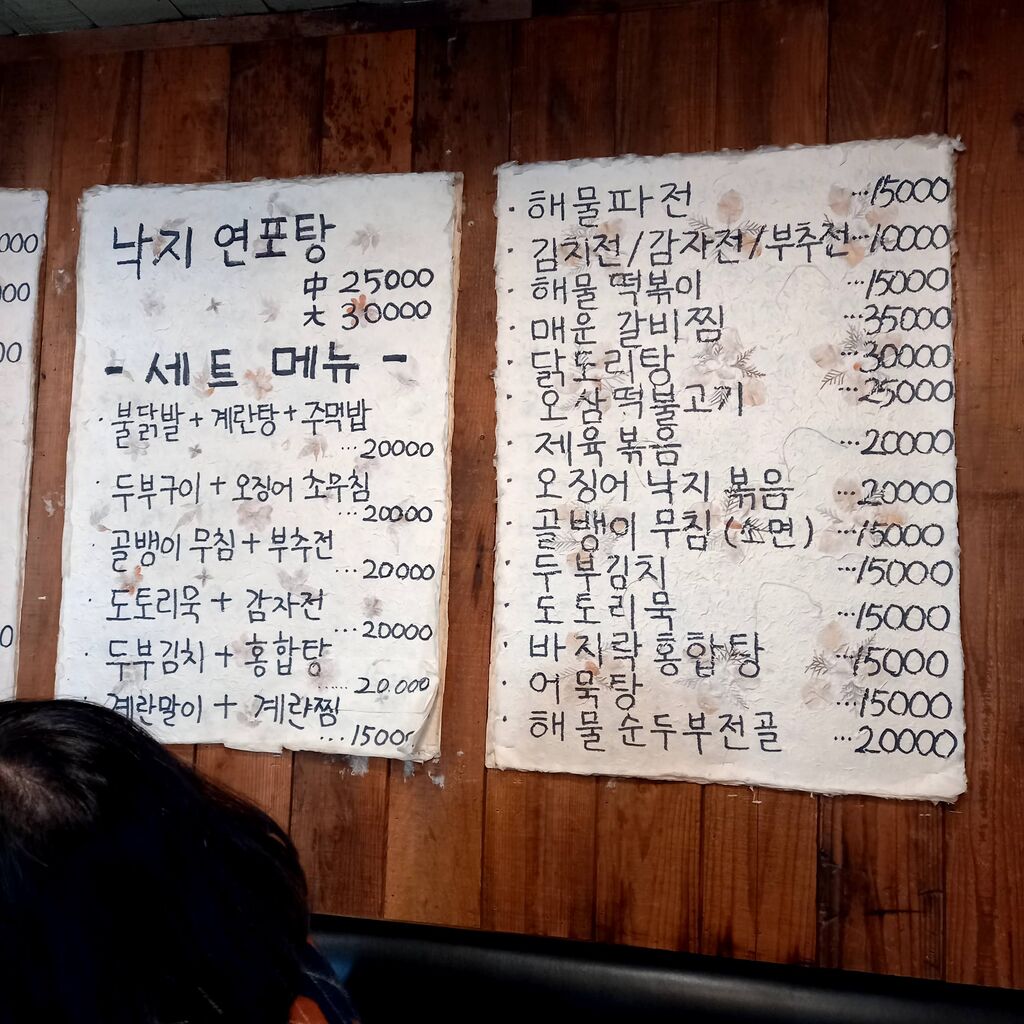 000
00
00
0
낙지 연포탕
中 25000
大 30000
- 세트 메뉴 -
· 불닭발 + 계란탕 + 주먹밥
...20000
· 두부구이 + 오징어 초무침
...20000
· 골뱅이 무침 + 부추전
...20000
· 도토리묵 + 감자전
...20000
· 두부김치 + 홍합탕
......20.000
· 계란말이 + 계란찜
...15000
· 해물파전 ...15000
· 김치전/감자전/부추전...10000
· 해물 떡볶이 ...15000
· 매운 갈비찜 ...35000
· 닭도리탕 ...30000
· 오삼떡불고기 ...25000
· 제육볶음 ...20000
· 오징어 낙지 볶음 ...20000
· 골뱅이 무침 (소면) ...15000
· 두부김치 ...15000
· 도토리묵 ...15000
· 바지락 홍합탕 ...15000
· 어묵탕 ...15000
· 해물순두부전골 ...20000